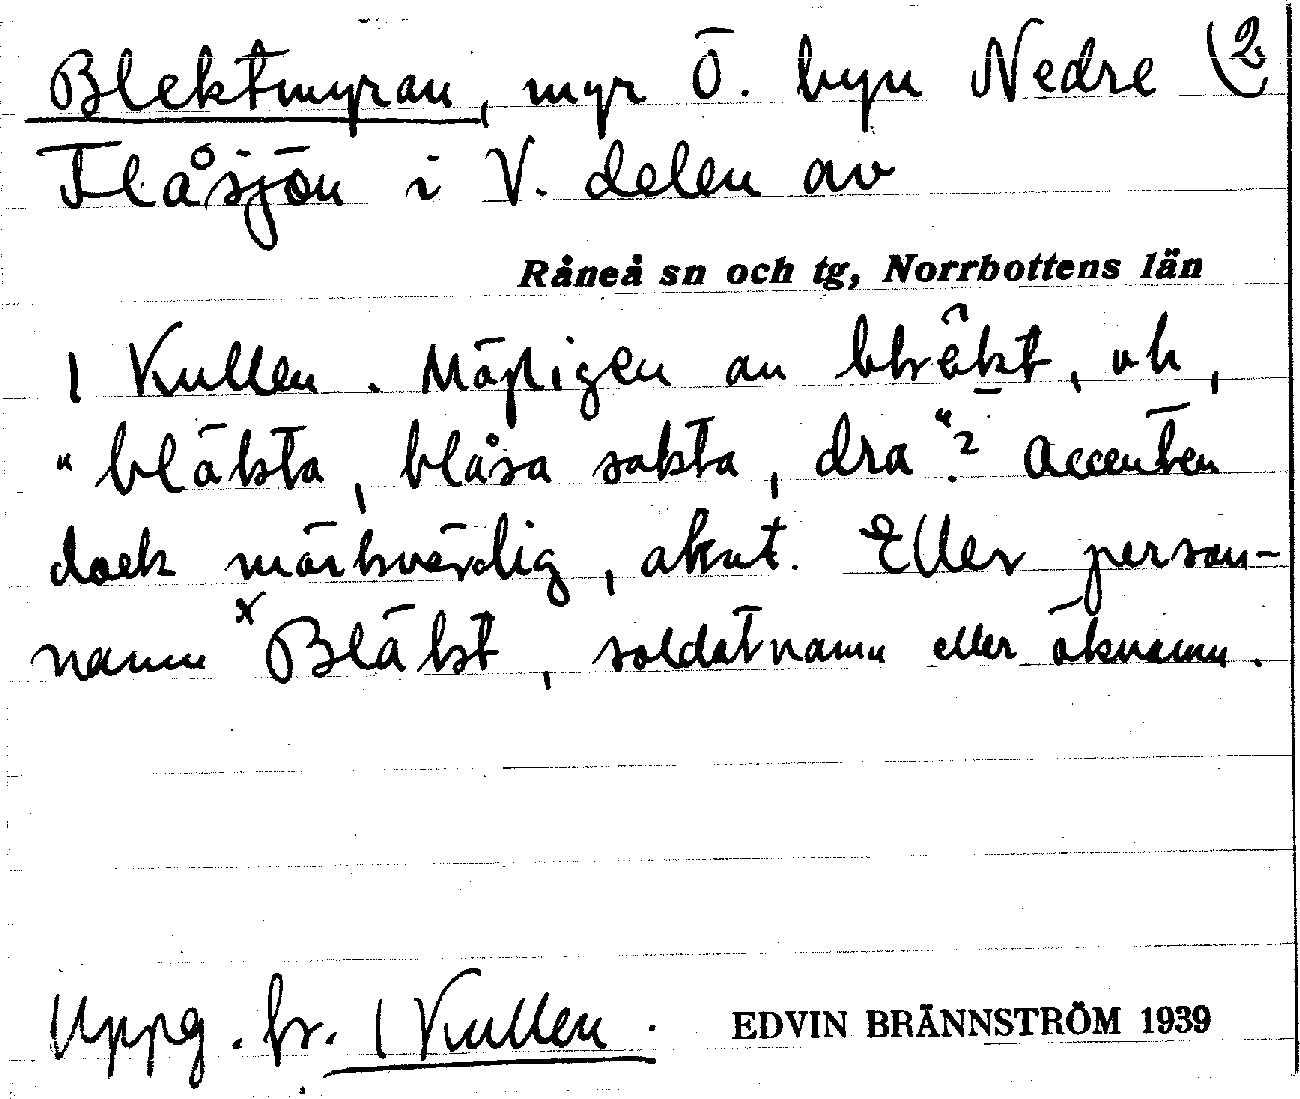 Blektmyran, myr Ö. byn Nedre (2
Flåsjön i V. delen av
Råneå sn och tg, Norrbottens län
1 Kullen. Möjligen an , vb,
"bläkta, blåsa sakta, dra"? Accenten
dock märkvärdig, akut. Eller person-
namn *Bläkt, soldatnamn eller öknamn.
Uppg. fr. 1 Kullen.
EDVIN BRÄNNSTRÖM 1939